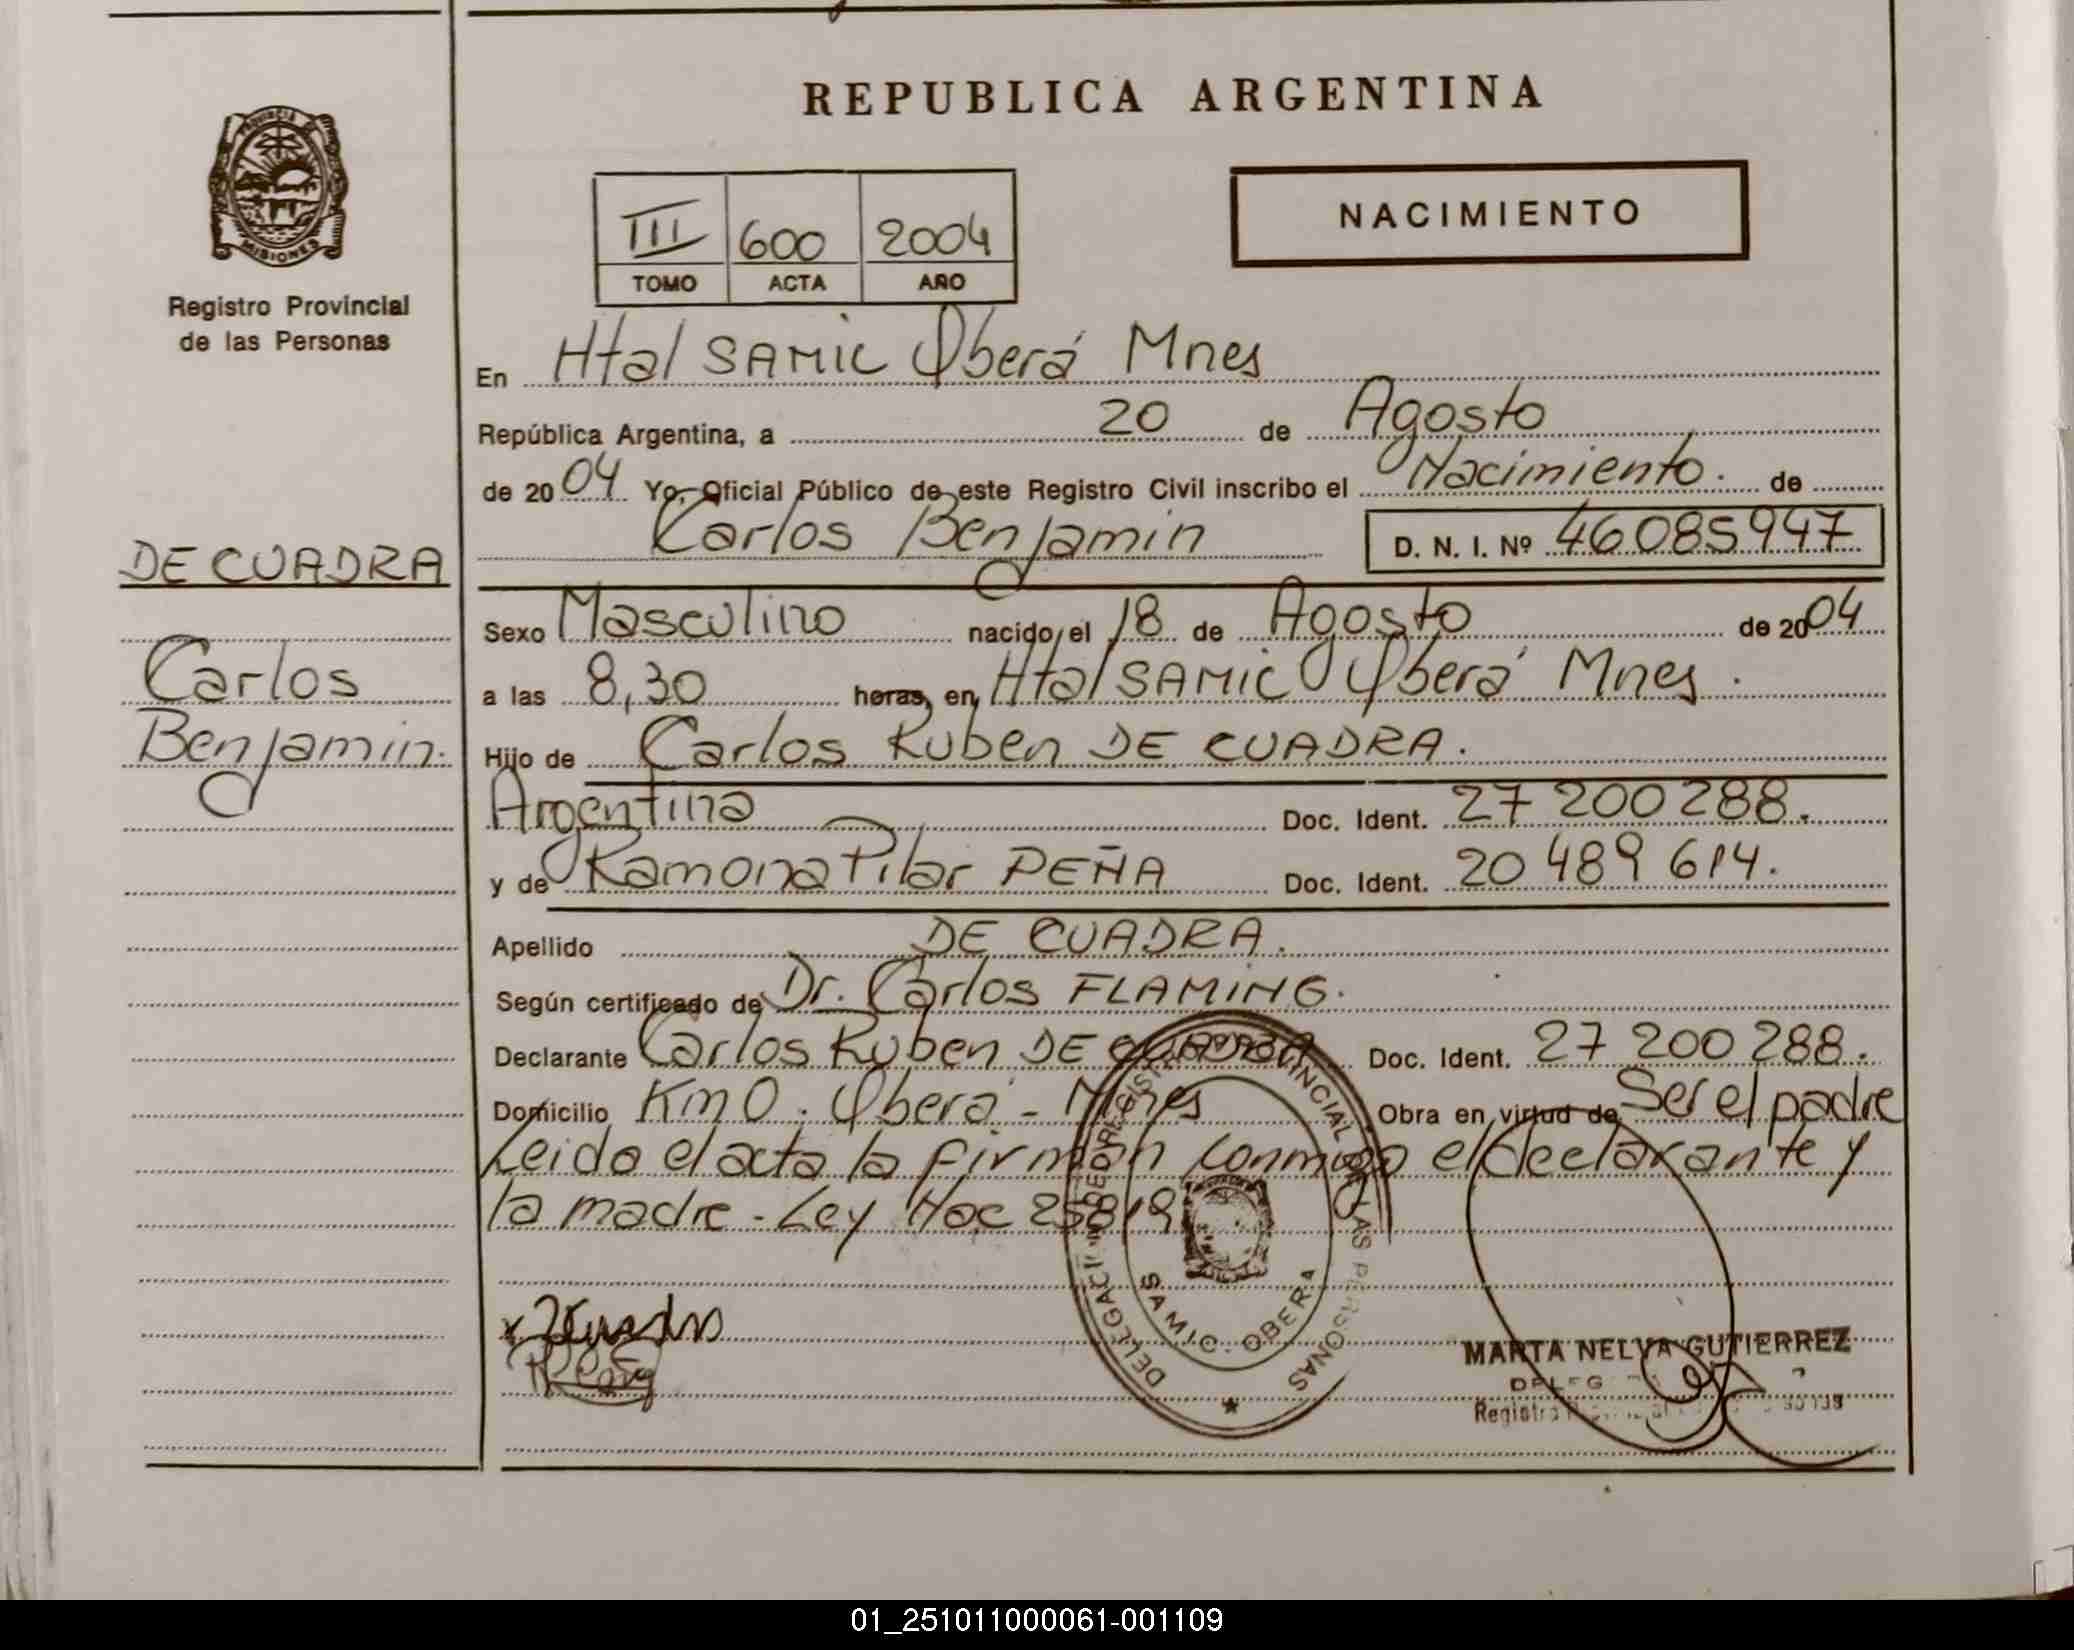 REPUBLICA ARGENTINA
PROVINCIA DE
MISIONES
Registro Provincial
de las Personas
NACIMIENTO
III 600 2004
TOMO ACTA AÑO
En Htal SAMIC Oberá Mnes
República Argentina, a 20 de Agosto
de 2004 Yo, Oficial Público de este Registro Civil inscribo el Nacimiento. de
Carlos Benjamin D. N. I. Nº 46085947
DE CUADRA
Carlos
Benjamin.
Sexo Masculino nacido el 18 de Agosto de 2004
a las 8,30 horas, en Htal SAMIC Oberá Mnes.
Hijo de Carlos Ruben DE CUADRA.
Argentina Doc. Ident. 27 200 288.
y de Ramona Pilar PEÑA Doc. Ident. 20 489 614.
Apellido DE CUADRA.
Según certificado de Dr. Carlos FLAMING.
Declarante Carlos Ruben DE CUADRA Doc. Ident. 27 200 288.
Domicilio Km 0. Oberá - Mnes Obra en virtud de Ser el padre
Leido el acta la firman conmigo el declarante y
la madre - Ley Nac 25819
REGISTRO PROVINCIAL DE LAS PERSONAS
SAMIC. OBERA
MARTA NELVA GUTIERREZ
01_251011000061-001109